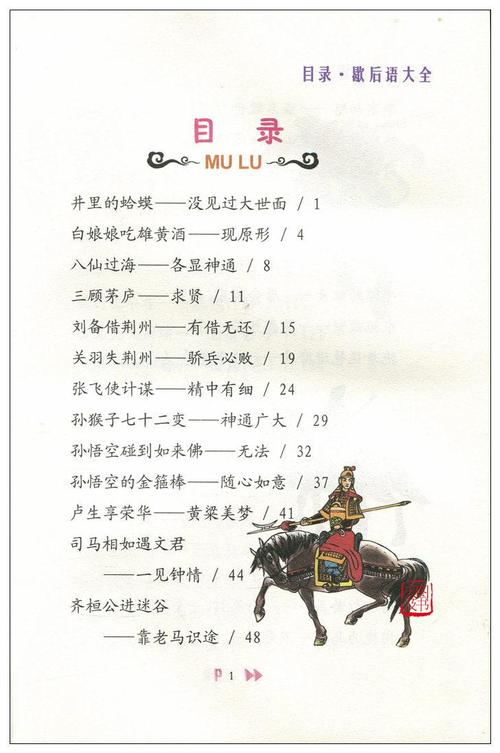 目录·歇后语大全
目 录
MU LU
井里的蛤蟆——没见过大世面 / 1
白娘娘吃雄黄酒——现原形 / 4
八仙过海——各显神通 / 8
三顾茅庐——求贤 / 11
刘备借荆州——有借无还 / 15
关羽失荆州——骄兵必败 / 19
张飞使计谋——精中有细 / 24
孙猴子七十二变——神通广大 / 29
孙悟空碰到如来佛——无法 / 32
孙悟空的金箍棒——随心如意 / 37
卢生享荣华——黄粱美梦 / 41
司马相如遇文君
——一见钟情 / 44
齐桓公进迷谷
——靠老马识途 / 48
P 1